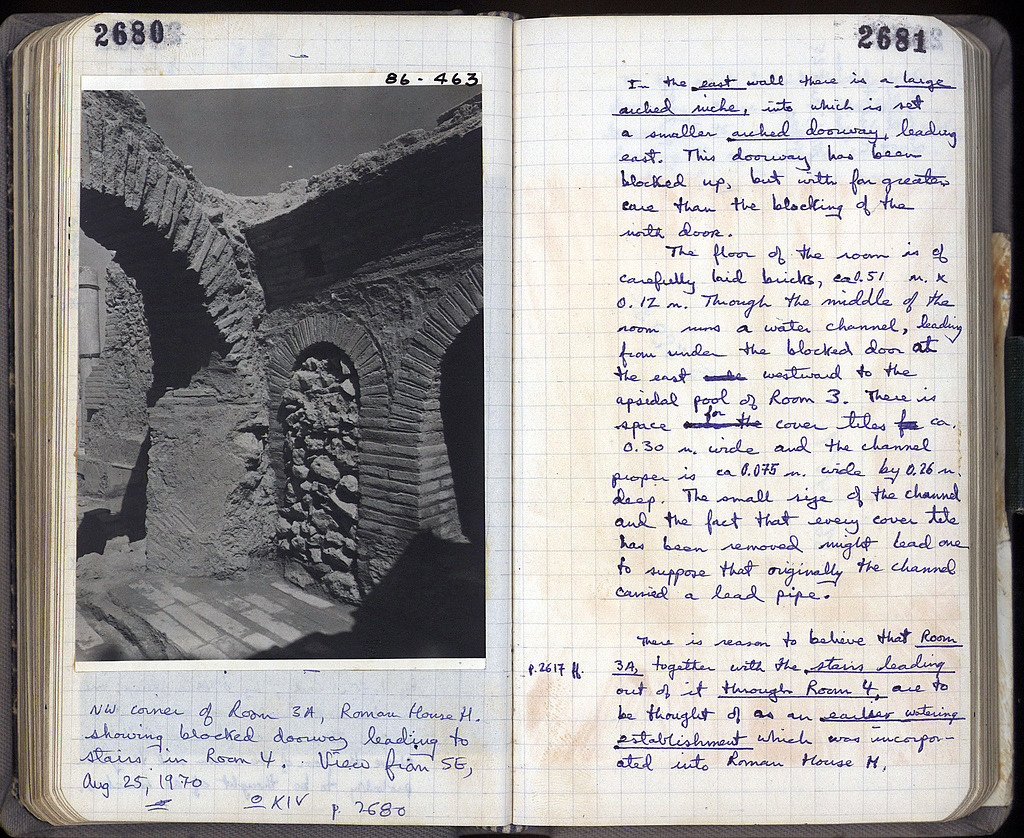 2680
86-463
NW corner of Room 3A, Roman House H.
showing blocked doorway leading to
stairs in Room 4. View from SE,
Aug 25, 1970
KIV p. 2680
2681
In the east wall there is a large
arched niche, into which is set
a smaller arched doorway, leading
east. This doorway has been
blocked up, but with far greater
care than the blocking of the
north door.
The floor of the room is of
carefully laid bricks, ca 0.51 m. x
0.12 m. Through the middle of the
room runs a water channel, leading
from under the blocked door at
the east westward to the
apsidal pool of Room 3. There is
space for the cover tiles ca.
0.30 m. wide and the channel
proper is ca 0.075 m. wide by 0.26 m.
deep. The small size of the channel
and the fact that every cover tile
has been removed might lead one
to suppose that originally the channel
carried a lead pipe.
There is reason to believe that Room
p. 2617 ff. 3A, together with the stairs leading
out of it through Room 4, are to
be thought of as an earlier watering
establishment which was incorpor-
ated into Roman House H.